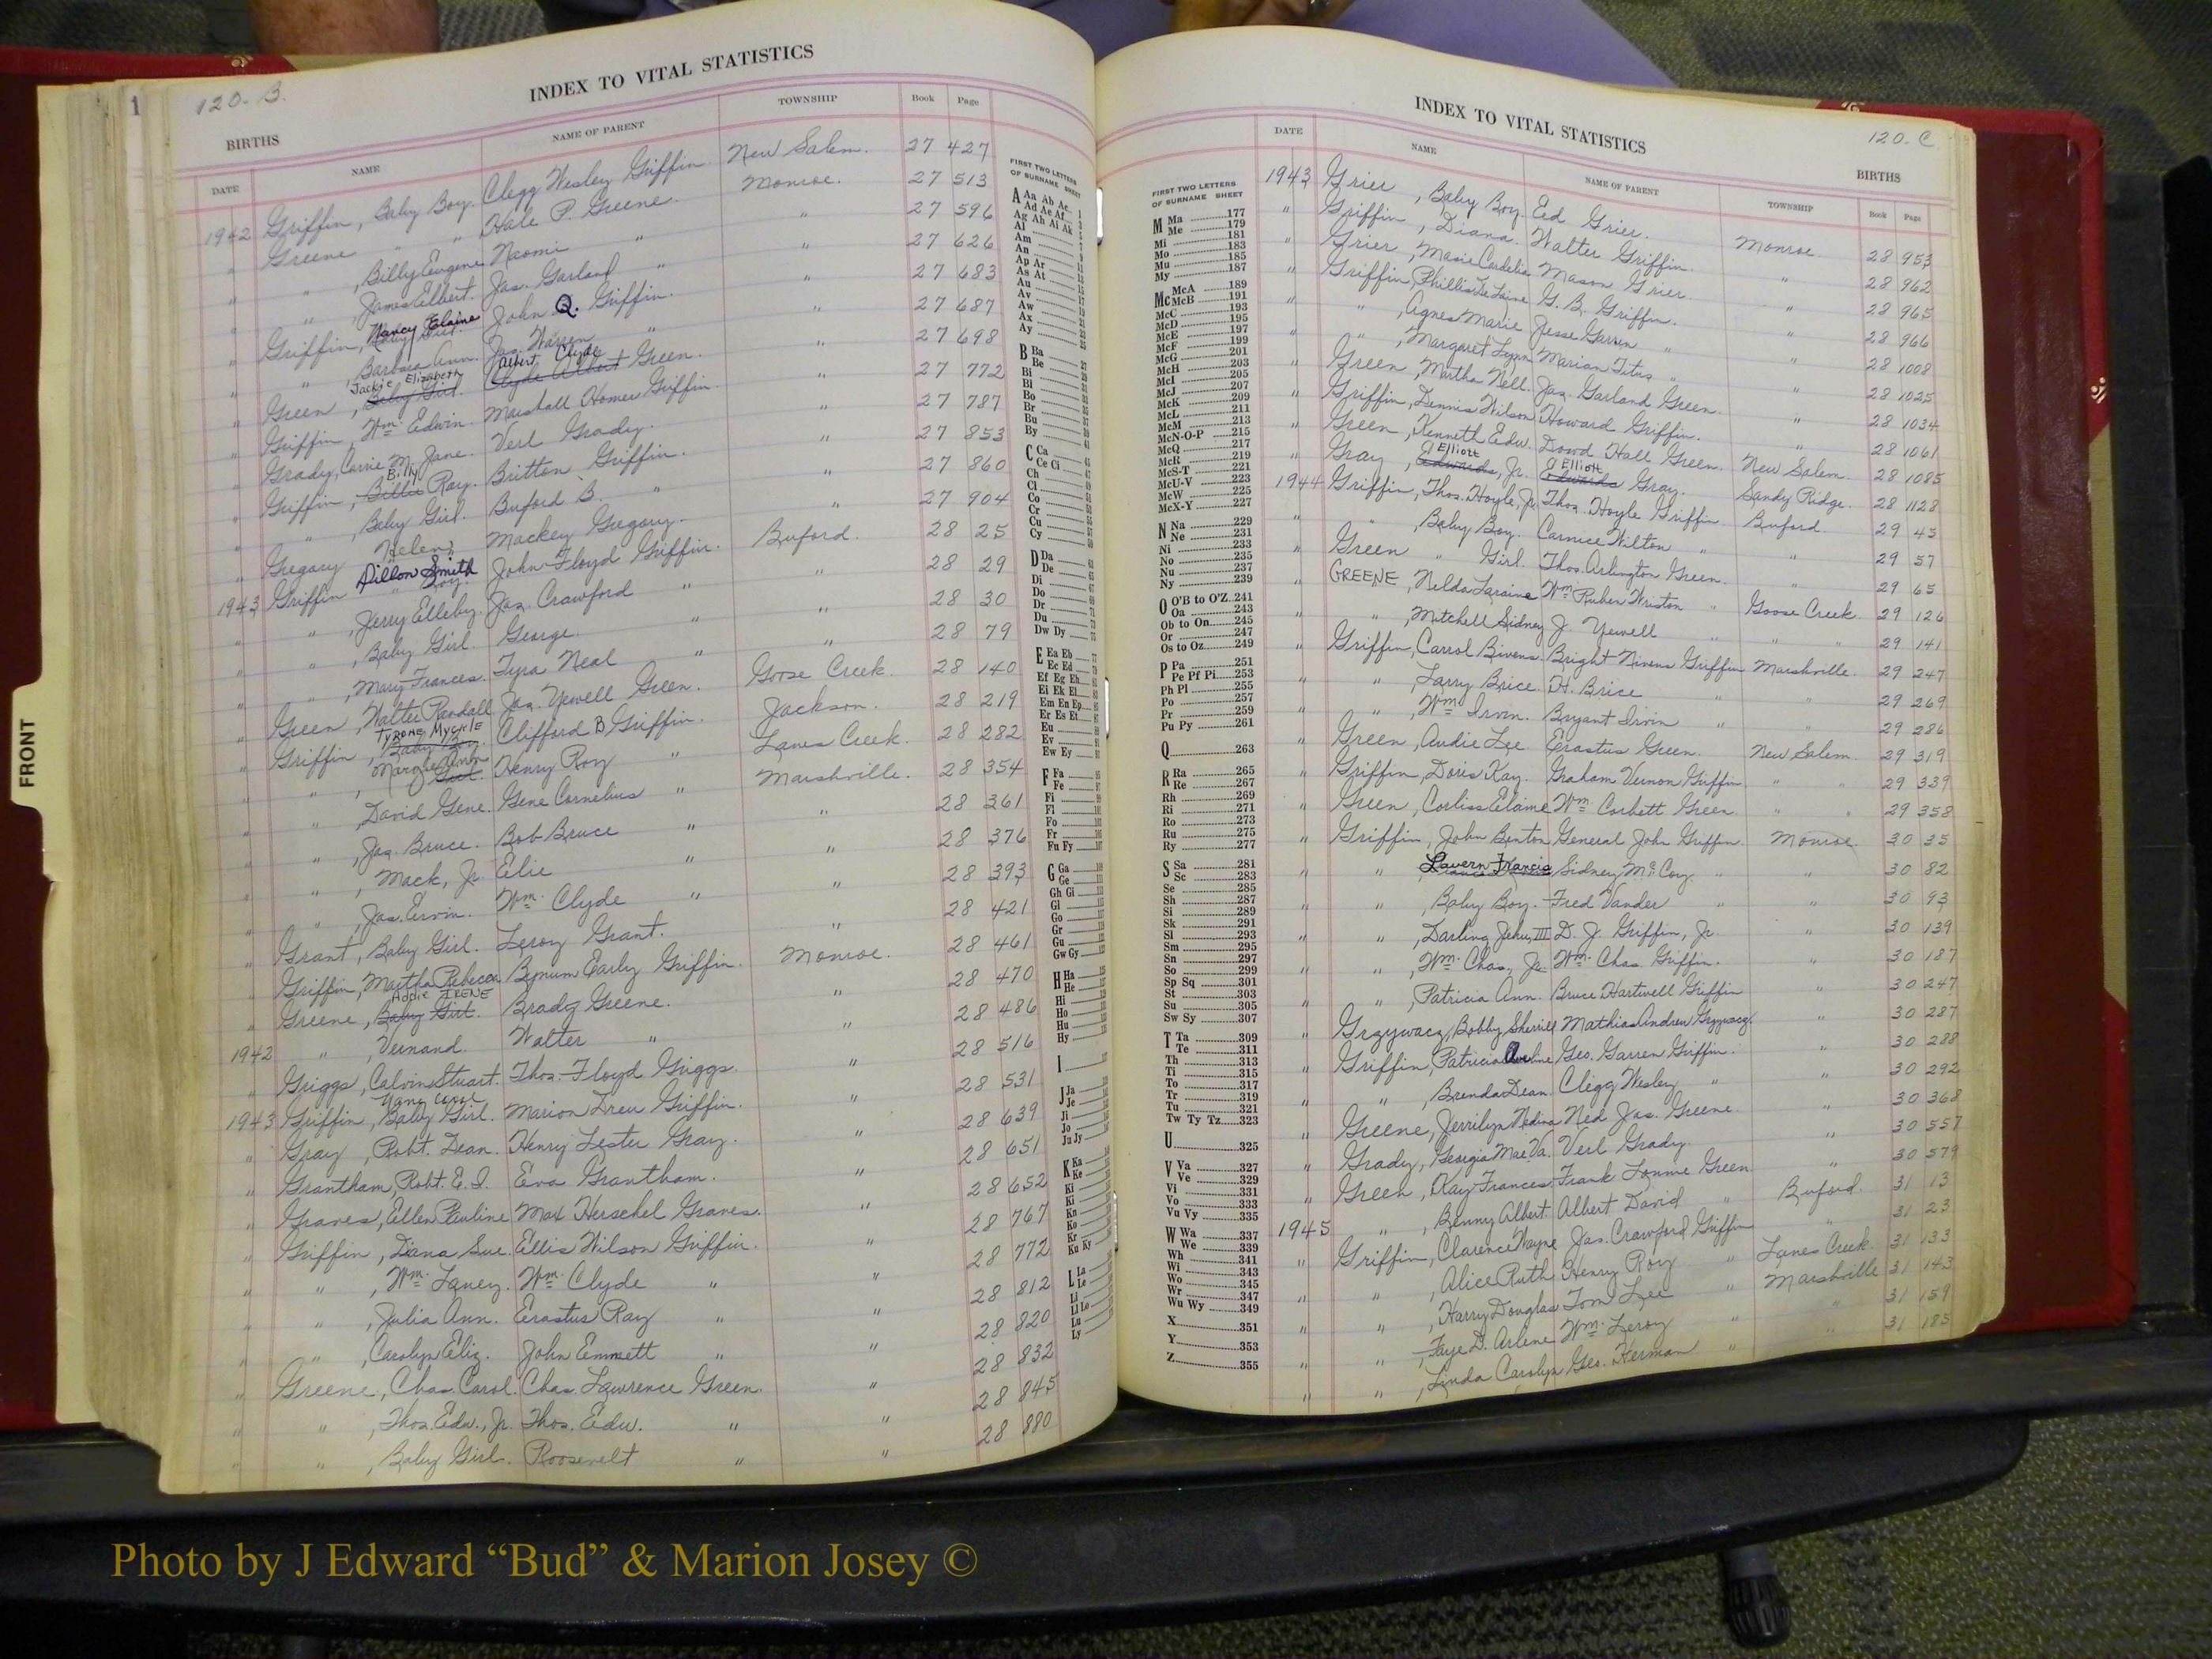 120-B.
INDEX TO VITAL STATISTICS
BIRTHS
DATE NAME NAME OF PARENT TOWNSHIP Book Page
1942 Griffin, Baby Boy. Clegg Wesley Griffin New Salem. 27 427
" Greene " " Hale P. Greene Monroe. 27 513
" " , Billy Eugene Naomi " " 27 596
" " , James Elbert. Jas. Garland " " 27 626
" Griffin, Nancy Elaine John Q. Griffin. " 27 683
" " , Barbara Ann. Jas. Warren " " 27 687
" Green, Jackie Elizabeth Baby Girl. Albert Clyde Clyde Albert Green. " 27 698
" Griffin, Wm. Edwin. Marshall Homer Griffin. " 27 772
" Grady, Carrie M. Jane. Verl Grady. " 27 787
" Griffin, Billy Billie Ray. Britton Griffin. " 27 853
" " , Baby Girl. Buford B. " " 27 860
" Gregory Helen Mackey Gregory. " 27 904
1943 Griffin Dillon Smith " Boy. John Floyd Griffin. Buford. 28 25
" " , Jerry Elleby. Jas. Crawford " " 28 29
" " , Baby Girl George. " " 28 30
" " , Mary Frances. Tyra Neal " " 28 79
" Green, Walter Randall Jas. Yewell Green. Goose Creek. 28 140
" Griffin, TYRONE MYCHLE Baby Boy Clifford B Griffin. Jackson. 28 219
" " , Girl Henry Roy " Lanes Creek. 28 282
" " , David Gene. Gene Cornelius " Marshville. 28 354
" " , Jas. Bruce. Bob Bruce " " 28 361
" " , Mack, Jr. Elie " " 28 376
" " , Jas. Ervin. Wm. Clyde " " 28 393
" Grant, Baby Girl. Leroy Grant. " 28 421
" Griffin, Martha Rebecca Bynum Early Griffin. Monroe. 28 461
" Greene, Addie IRENE Baby Girl. Brady Greene. " 28 470
1942 " , Vernand. Walter " " 28 486
" Griggs, Calvin Stuart. Thos. Floyd Griggs. " 28 516
1943 Griffin, Baby Girl. Marion Drew Griffin. " 28 531
" Gray, Robt. Dean. Henry Lester Gray. " 28 639
" Grantham, Robt. E. I. Eva Grantham. " 28 651
" Graves, Ellen Pauline Max Herschel Graves. " 28 652
" Griffin, Diana Sue. Ellis Wilson Griffin. " 28 767
" " , Wm. Laney. Wm. Clyde " " 28 772
" " , Julia Ann. Erastus Ray " " 28 812
" " , Carolyn Eliz. John Emmett " " 28 820
" Greene, Chas. Carol. Chas. Lawrence Green. " 28 832
" " , Thos. Edw., Jr. Thos. Edw. " " 28 845
" " , Baby Girl. Roosevelt " " 28 880
FIRST TWO LETTERS
OF SURNAME SHEET
A Aa Ab Ac
Ad Ae Af
Ag Ah Ai Ak
Al
Am
An
Ap Ar
As At
Au
Av
Aw
Ax
Ay
B Ba
Be
Bi
Bl
Bo
Br
Bu
By
C Ca
Ce Ci
Ch
Cl
Co
Cr
Cu
Cy
D Da
De
Di
Do
Dr
Du
Dw Dy
E Ea Eb
Ec Ed
Ef Eg Eh
Ei Ek El
Em En Ep
Er Es Et
Eu
Ev
Ew Ey
F Fa
Fe
Fi
Fl
Fo
Fr
Fu Fy
G Ga
Ge
Gh Gi
Gl
Go
Gr
Gu
Gw Gy
H Ha
He
Hi
Ho
Hu
Hy
I
J Ja
Je
Ji
Jo
Ju Jy
K Ka
Ke
Ki
Kl
Kn
Ko
Kr
Ku Ky
L La
Le
Li
Ll Lo
Lu
Ly
INDEX TO VITAL STATISTICS
120-C
BIRTHS
DATE NAME NAME OF PARENT TOWNSHIP Book Page
FIRST TWO LETTERS
OF SURNAME SHEET
M Ma 177
Me 179
Mi 181
Mo 183
Mu 185
My 187
Mc McA 189
McB 191
McC 193
McD 195
McE 197
McF 199
McG 201
McH 203
McI 205
McJ 207
McK 209
McL 211
McM 213
McN-O-P 215
McQ 217
McR 219
McS-T 221
McU-V 223
McW 225
McX-Y 227
N Na 229
Ne 231
Ni 233
No 235
Nu 237
Ny 239
O O'B to O'Z 241
Oa 243
Ob to On 245
Or 247
Os to Oz 249
P Pa 251
Pe Pf Pi 253
Ph Pl 255
Po 257
Pr 259
Pu Py 261
Q 263
R Ra 265
Re 267
Rh 269
Ri 271
Ro 273
Ru 275
Ry 277
S Sa 281
Sc 283
Se 285
Sh 287
Si 289
Sk 291
Sl 293
Sm 295
Sn 297
So 299
Sp Sq 301
St 303
Su 305
Sw Sy 307
T Ta 309
Te 311
Th 313
Ti 315
To 317
Tr 319
Tu 321
Tw Ty Tz 323
U 325
V Va 327
Ve 329
Vi 331
Vo 333
Vu Vy 335
W Wa 337
We 339
Wh 341
Wi 343
Wo 345
Wr 347
Wu Wy 349
X 351
Y 353
Z 355
1943 Grier, Baby Boy. Ed Grier. Monroe 28 953
" Griffin, Diana. Walter Griffin. " 28 962
" Grier, Masie Cordelia Mason Grier. " 28 965
" Griffin, Phillis G. B. Griffin. " 28 966
" " , Agnes Marie Jesse Garren " " 28 1008
" " , Margaret Lynn Marian Titus " " 28 1025
" Green, Martha Nell. Jas. Garland Green. " 28 1034
" Griffin, Dennis Wilson Howard Griffin. " 28 1061
" Green, Kenneth Edw. Dowd Hall Green. New Salem. 28 1085
" Gray, Elliott Edwards, Jr. Elliott Edwards Gray. Sandy Ridge. 28 1128
1944 Griffin, Thos. Hoyle, Jr. Thos. Hoyle Griffin Buford. 29 43
" " , Baby Boy. Carnice Wilton " " 29 57
" Green " Girl. Thos. Arlington Green. " 29 65
" GREENE, Nelda Laraine Wm. Ruben Wriston " Goose Creek 29 126
" " , Mitchell Sidney J. Yewell " " 29 141
" Griffin, Carrol Bivens. Bright Nivens Griffin Marshville. 29 247
" " , Larry Brice. H. Brice " " 29 269
" " , Wm. Irvin. Bryant Irvin " " 29 286
" Green, Audie Lee. Erastus Green. New Salem. 29 319
" Griffin, Doris Kay. Graham Vernon Griffin " 29 339
" Green, Corliss Elaine Wm. Corbett Green " 29 358
" Griffin, John Benton General John Griffin. Monroe 30 35
" " Lavern Francis Sidney McCoy. " " 30 82
" " , Baby Boy. Fred Vander " " 30 93
" " , Darling Jehu, III D. J. Griffin, Jr. " 30 139
" " , Wm. Chas., Jr. Wm. Chas. Griffin. " 30 187
" " , Patricia Ann. Bruce Hartwell Griffin " 30 247
" Grzywacz, Bobby Sherrill Mathias Andrew Grzywacz. " 30 287
" Griffin, Patricia Geo. Garren Griffin. " 30 288
" " , Brenda Dean. Clegg Wesley " " 30 292
" Greene, Jerrilyn Nedina Ned Jas. Greene. " 30 368
" Grady, Georgia Mae Va. Verl Grady. " 30 557
" Green, Kay Frances Frank Lonnie Green " 30 579
1945 " , Benny Albert. Albert David " Buford. 31 13
" Griffin, Clarence Wayne Jas. Crawford Griffin " 31 23
" " , Alice Ruth Henry Roy " Lanes Creek 31 133
" " , Harry Douglas Tom Lee " Marshville 31 143
" " , Faye D. Arlene Wm. Leroy " " 31 159
" " , Linda Carolyn Geo. Herman " " 31 185
FRONT
Photo by J Edward “Bud” & Marion Josey ©